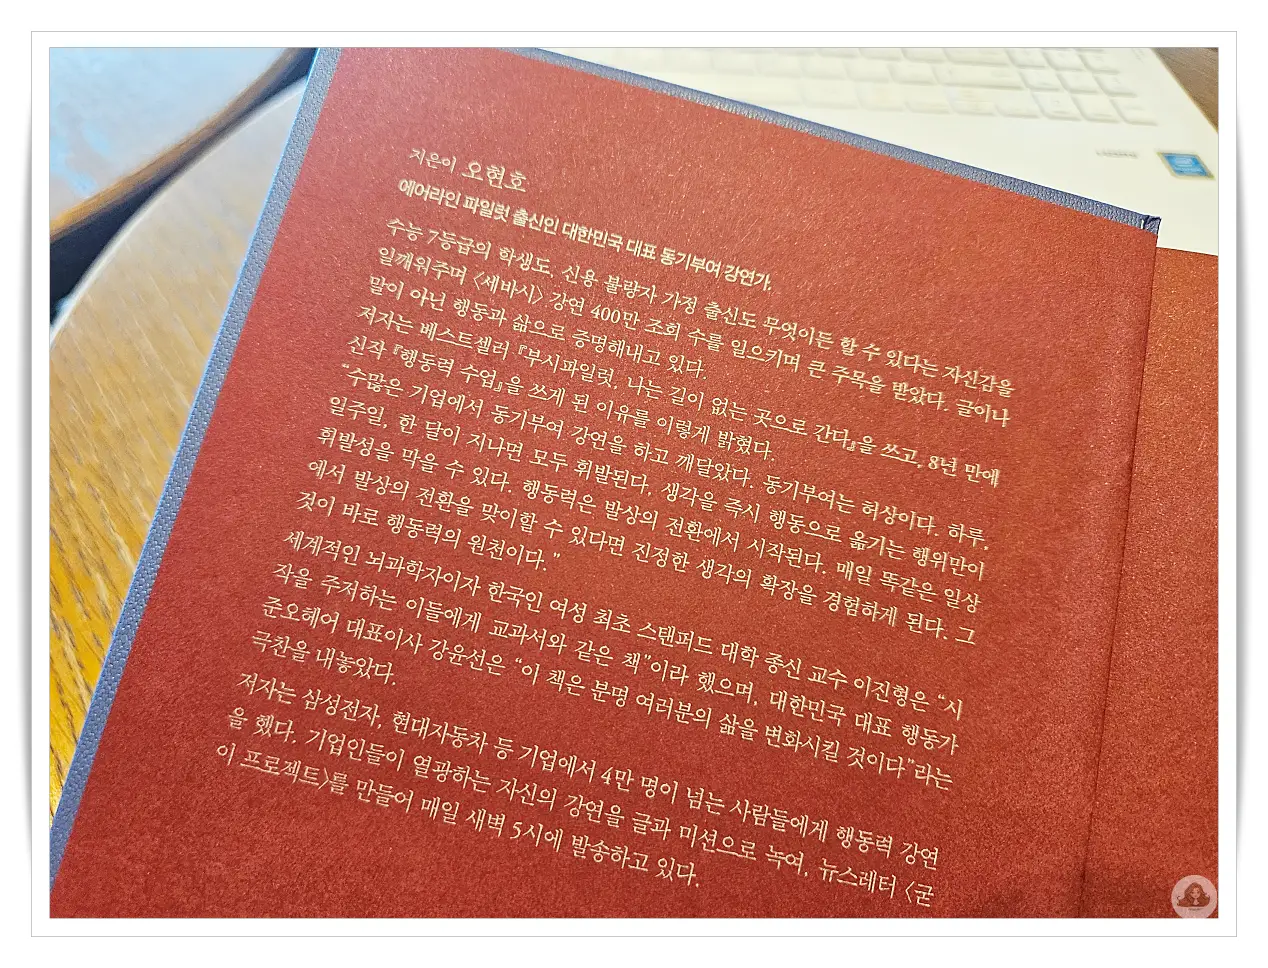 지은이 오현호
에어라인 파일럿 출신인 대한민국 대표 동기부여 강연가.
수능 7등급의 학생도, 신용 불량자 가정 출신도 무엇이든 할 수 있다는 자신감을
일깨워주며 〈세바시〉 강연 400만 조회 수를 일으키며 큰 주목을 받았다. 글이나
말이 아닌 행동과 삶으로 증명해내고 있다.
저자는 베스트셀러 『부시파일럿, 나는 길이 없는 곳으로 간다』을 쓰고, 8년 만에
신작 『행동력 수업』을 쓰게 된 이유를 이렇게 밝혔다.
“수많은 기업에서 동기부여 강연을 하고 깨달았다. 동기부여는 허상이다. 하루,
일주일, 한 달이 지나면 모두 휘발된다. 생각을 즉시 행동으로 옮기는 행위만이
휘발성을 막을 수 있다. 행동력은 발상의 전환에서 시작된다. 매일 똑같은 일상
에서 발상의 전환을 맞이할 수 있다면 진정한 생각의 확장을 경험하게 된다. 그
것이 바로 행동력의 원천이다.”
세계적인 뇌과학자이자 한국인 여성 최초 스탠퍼드 대학 종신 교수 이진형은 “시
작을 주저하는 이들에게 교과서와 같은 책”이라 했으며, 대한민국 대표 행동가
준오헤어 대표이사 강윤선은 “이 책은 분명 여러분의 삶을 변화시킬 것이다”라는
극찬을 내놓았다.
저자는 삼성전자, 현대자동차 등 기업에서 4만 명이 넘는 사람들에게 행동력 강연
을 했다. 기업인들이 열광하는 자신의 강연을 글과 미션으로 녹여, 뉴스레터 〈굳
이 프로젝트〉를 만들어 매일 새벽 5시에 발송하고 있다.